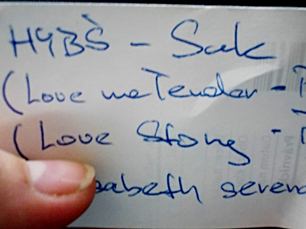 HYBŠ - Suk
(Love me Tender -
(Love Story -
sabeth serena